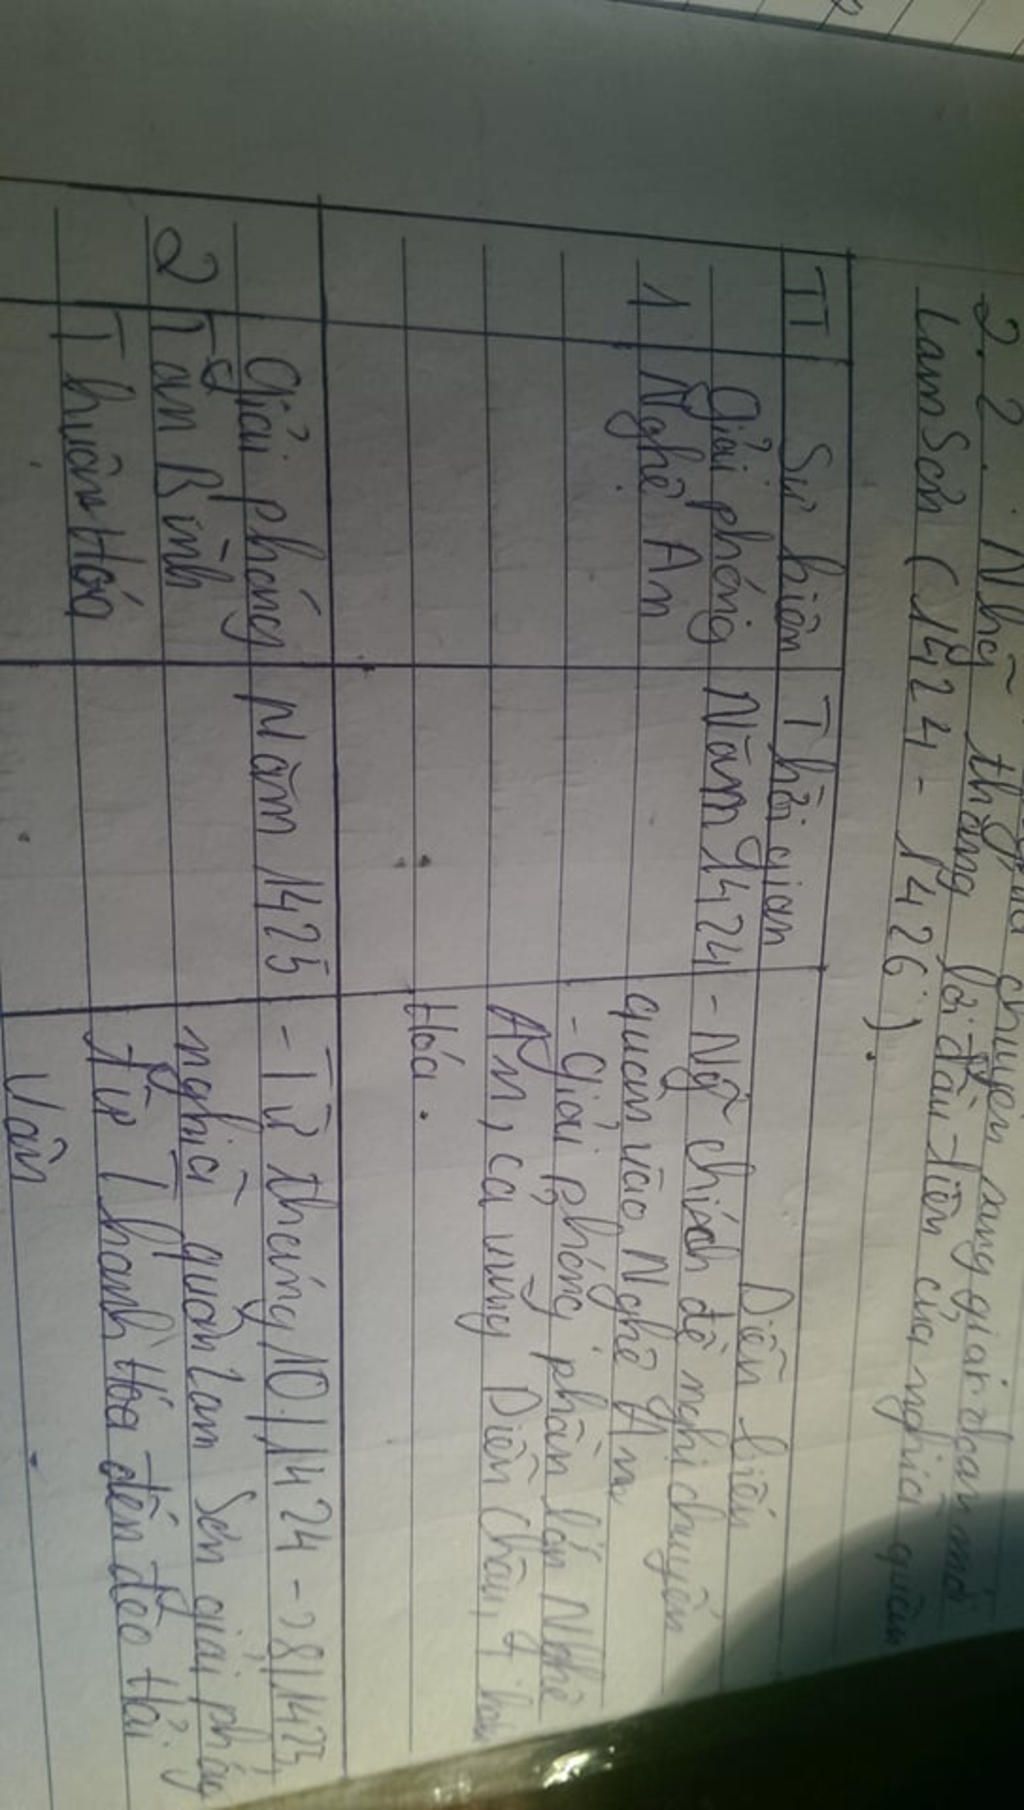 chuyển sang giai đoạn mới
2.2. Nhữ thắng lời đầu tiên của nghĩa quân
Lam Sơn (1424 - 1426).
TT Sự kiện Thời gian Diễn biến
1 Giải phóng Nghệ An Năm 1424 - Ng~ chích đề nghị chuyển
quân vào Nghệ An
- Giải phóng phần lớn Nghệ
An, cả vùng Diễn Châu, T
Hóa.
2 Giải phóng Năm 1425 - Từ tháng 10/1424 -> 8/1425,
Tân Bình nghĩa quân Lam Sơn giải phóng
Thuận Hóa từ Thanh Hóa đến đèo Hải
Vân